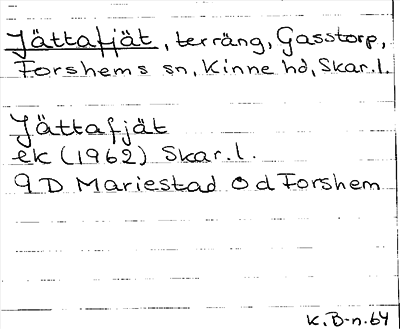 Jättafjät, terräng, Gasstorp,
Forshems sn, Kinne hd, Skar.l.
Jättafjät
ek (1962) Skar.l.
9D Mariestad o d Forshem
K.B-n.64